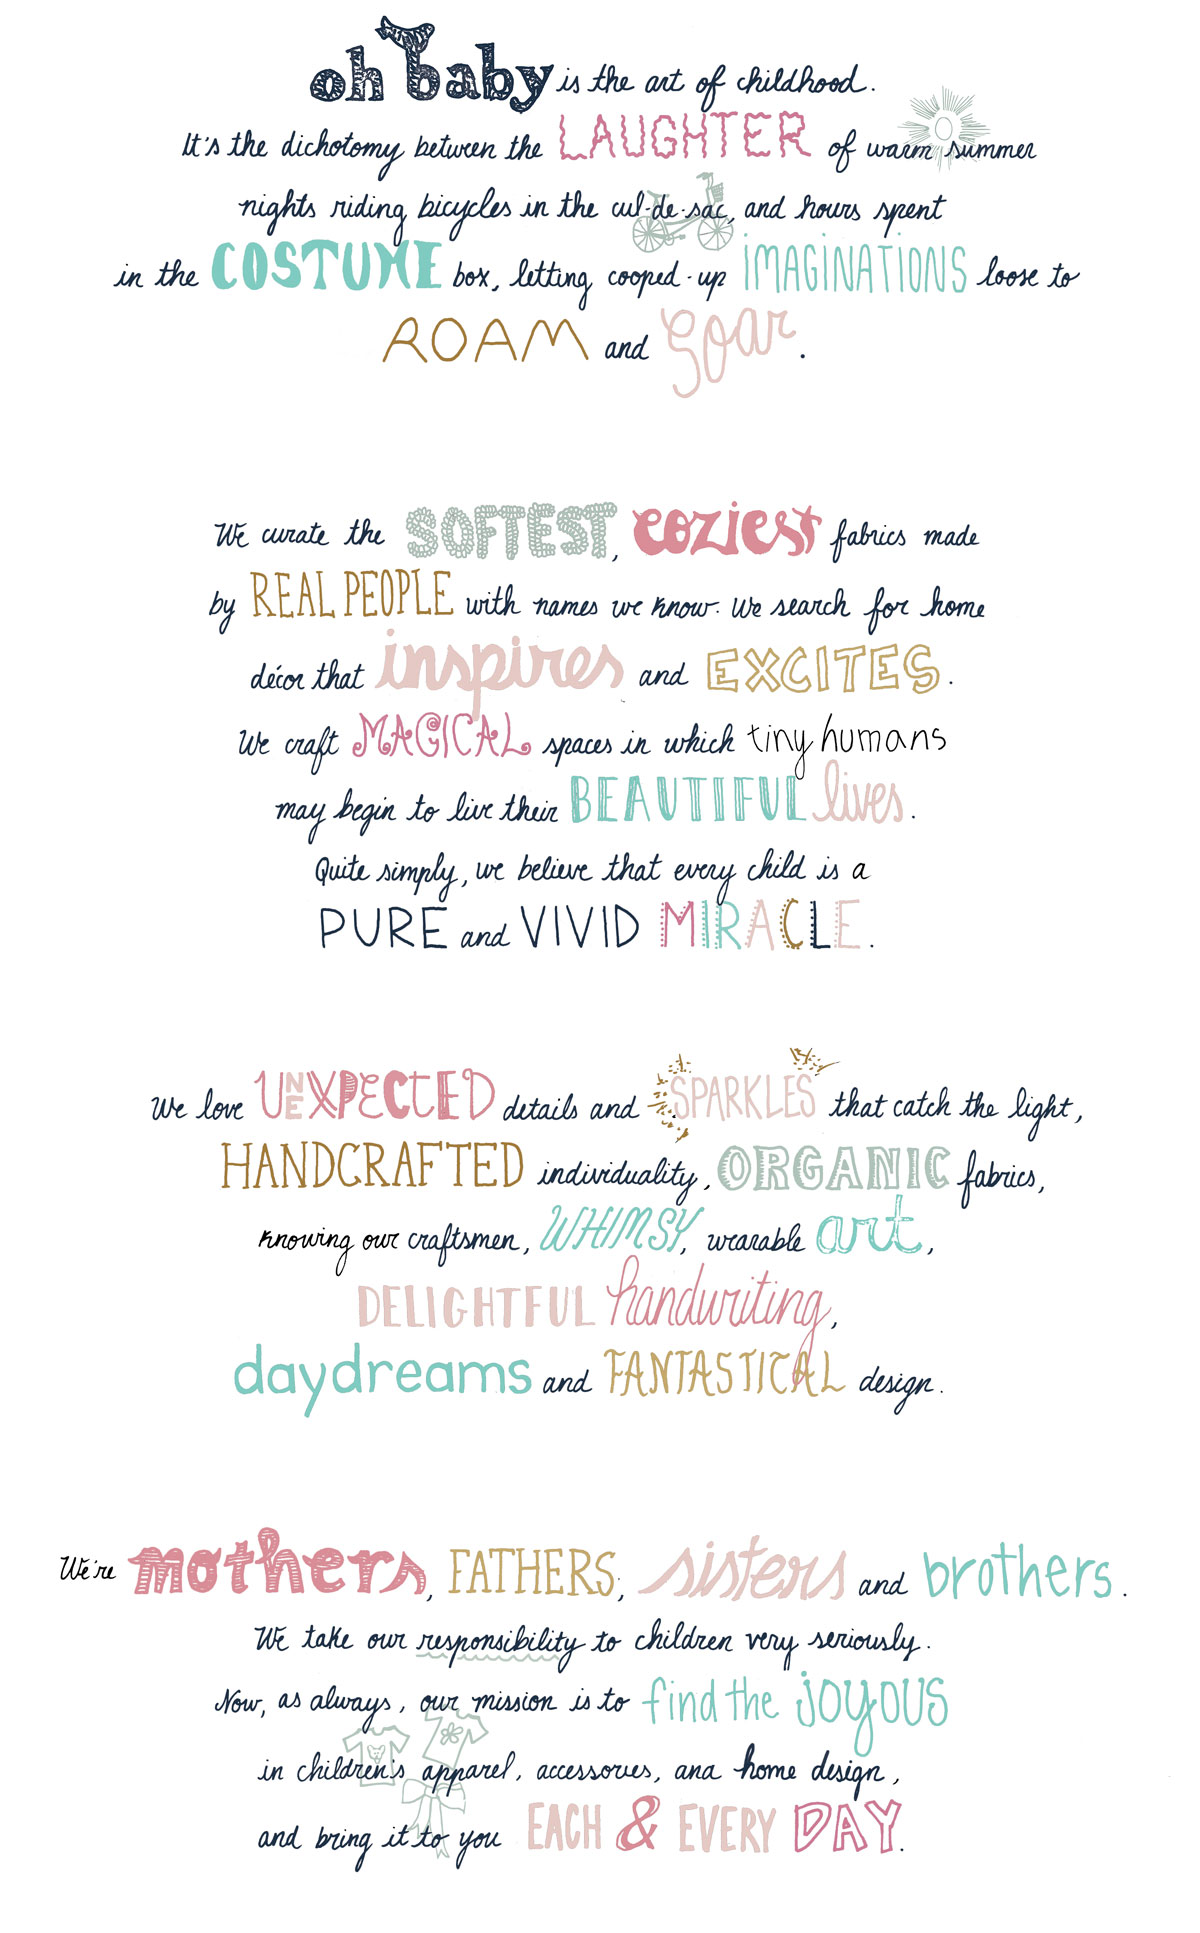 oh baby is the art of childhood.
It's the dichotomy between the LAUGHTER of warm summer
nights riding bicycles in the cul-de-sac, and hours spent
in the COSTUME box, letting cooped-up IMAGINATIONS loose to
ROAM and soar.
We curate the SOFTEST, coziest fabrics made
by REAL PEOPLE with names we know. We search for home
décor that inspires and EXCITES.
We craft MAGICAL spaces in which tiny humans
may begin to live their BEAUTIFUL lives.
Quite simply, we believe that every child is a
PURE and VIVID MIRACLE.
We love UNEXPECTED details and SPARKLES that catch the light,
HANDCRAFTED individuality, ORGANIC fabrics,
knowing our craftsmen, WHIMSY, wearable art,
DELIGHTFUL handwriting,
daydreams and FANTASTICAL design.
We're mothers, FATHERS, sisters and brothers.
We take our responsibility to children very seriously.
Now, as always, our mission is to find the JOYOUS
in children's apparel, accessories, and home design,
and bring it to you EACH & EVERY DAY.